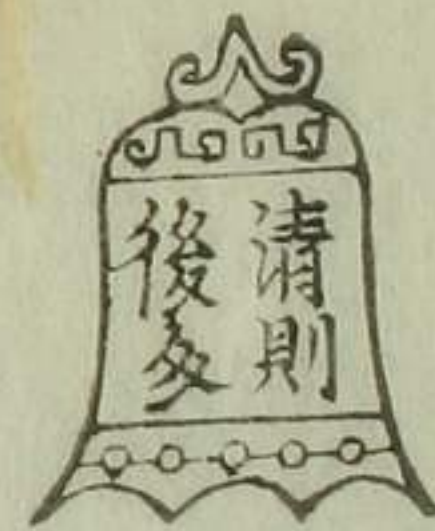 清則
後多